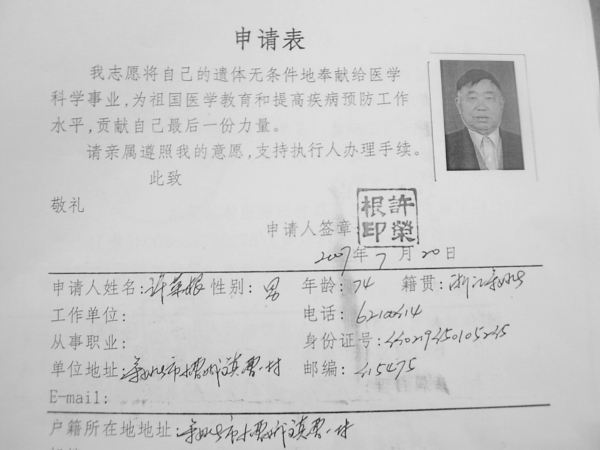 申请表
我志愿将自己的遗体无条件地奉献给医学
科学事业,为祖国医学教育和提高疾病预防工作
水平,贡献自己最后一份力量。
请亲属遵照我的意愿,支持执行人办理手续。
此致
敬礼
申请人签章: 許榮根印
2007年7月20日
申请人姓名:许荣根 性别:男 年龄:74 籍贯:浙江
工作单位: 电话:
从事职业: 身份证号:
单位地址: 邮编:315475
E-mail:
户籍所在地地址: